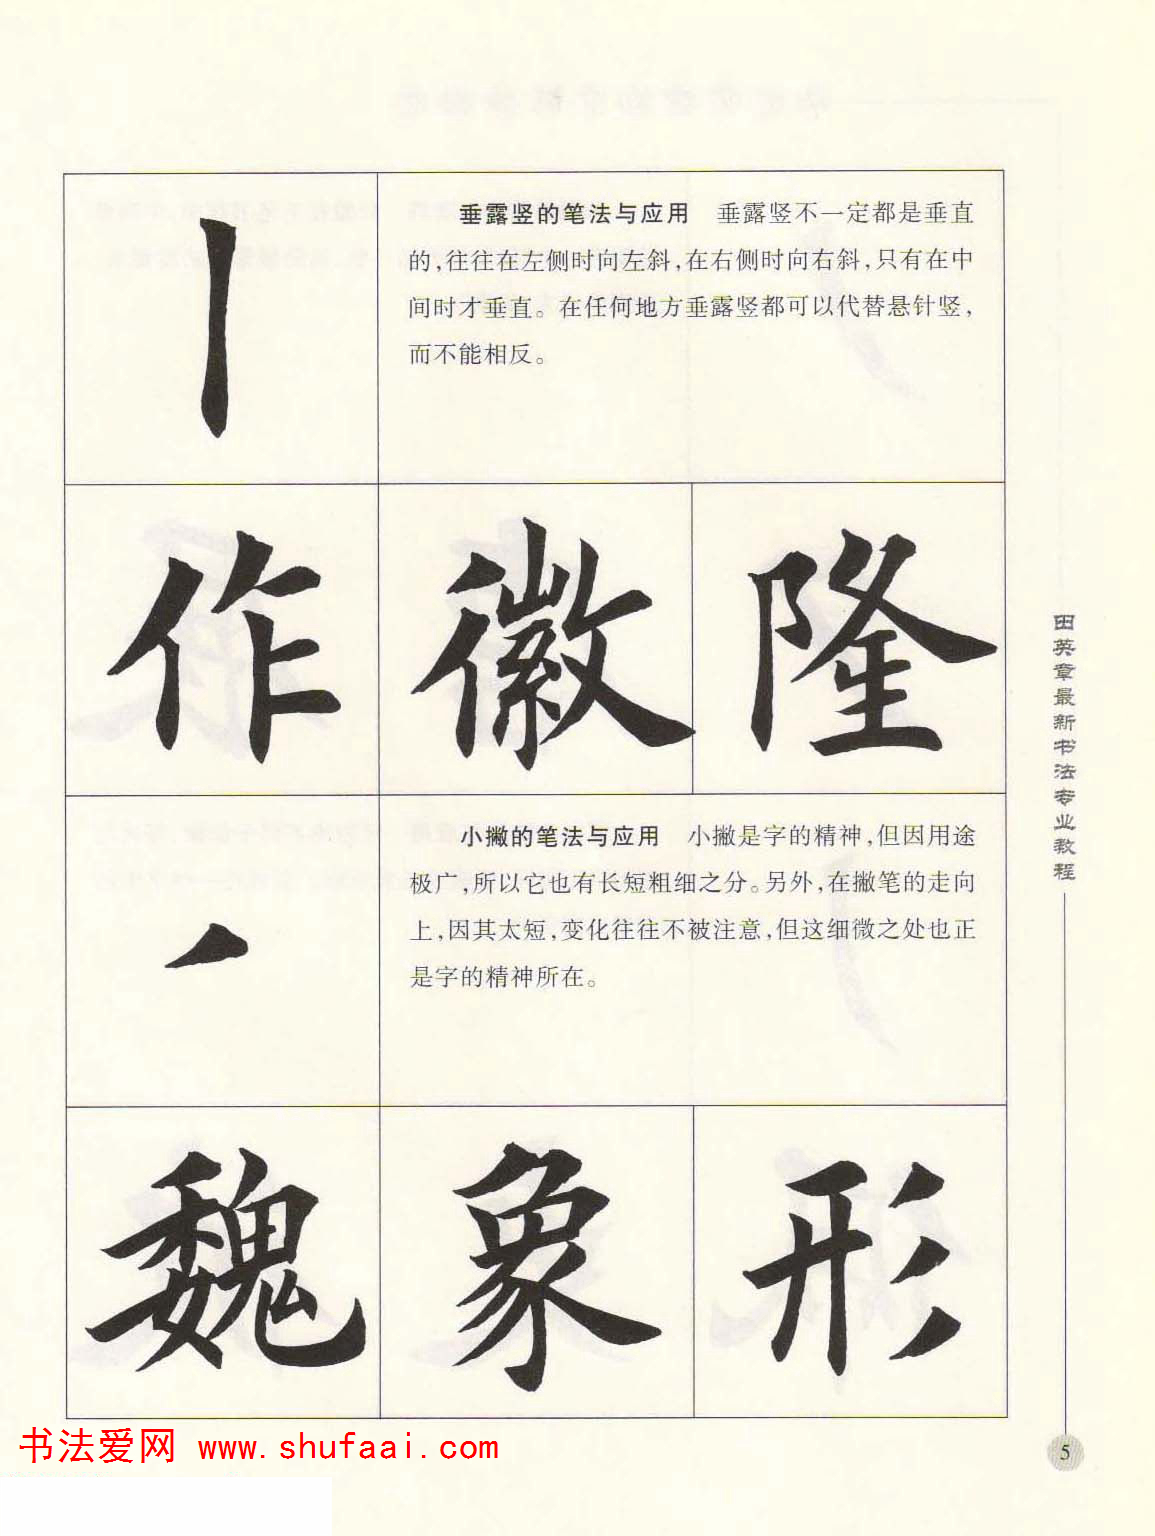 垂露竖的笔法与应用　垂露竖不一定都是垂直
的,往往在左侧时向左斜,在右侧时向右斜,只有在中
间时才垂直。在任何地方垂露竖都可以代替悬针竖,
而不能相反。
作 徽 隆
小撇的笔法与应用　小撇是字的精神,但因用途
极广,所以它也有长短粗细之分。另外,在撇笔的走向
上,因其太短,变化往往不被注意,但这细微之处也正
是字的精神所在。
魏 象 形
田英章最新书法专业教程
5
书法爱网 www.shufaai.com